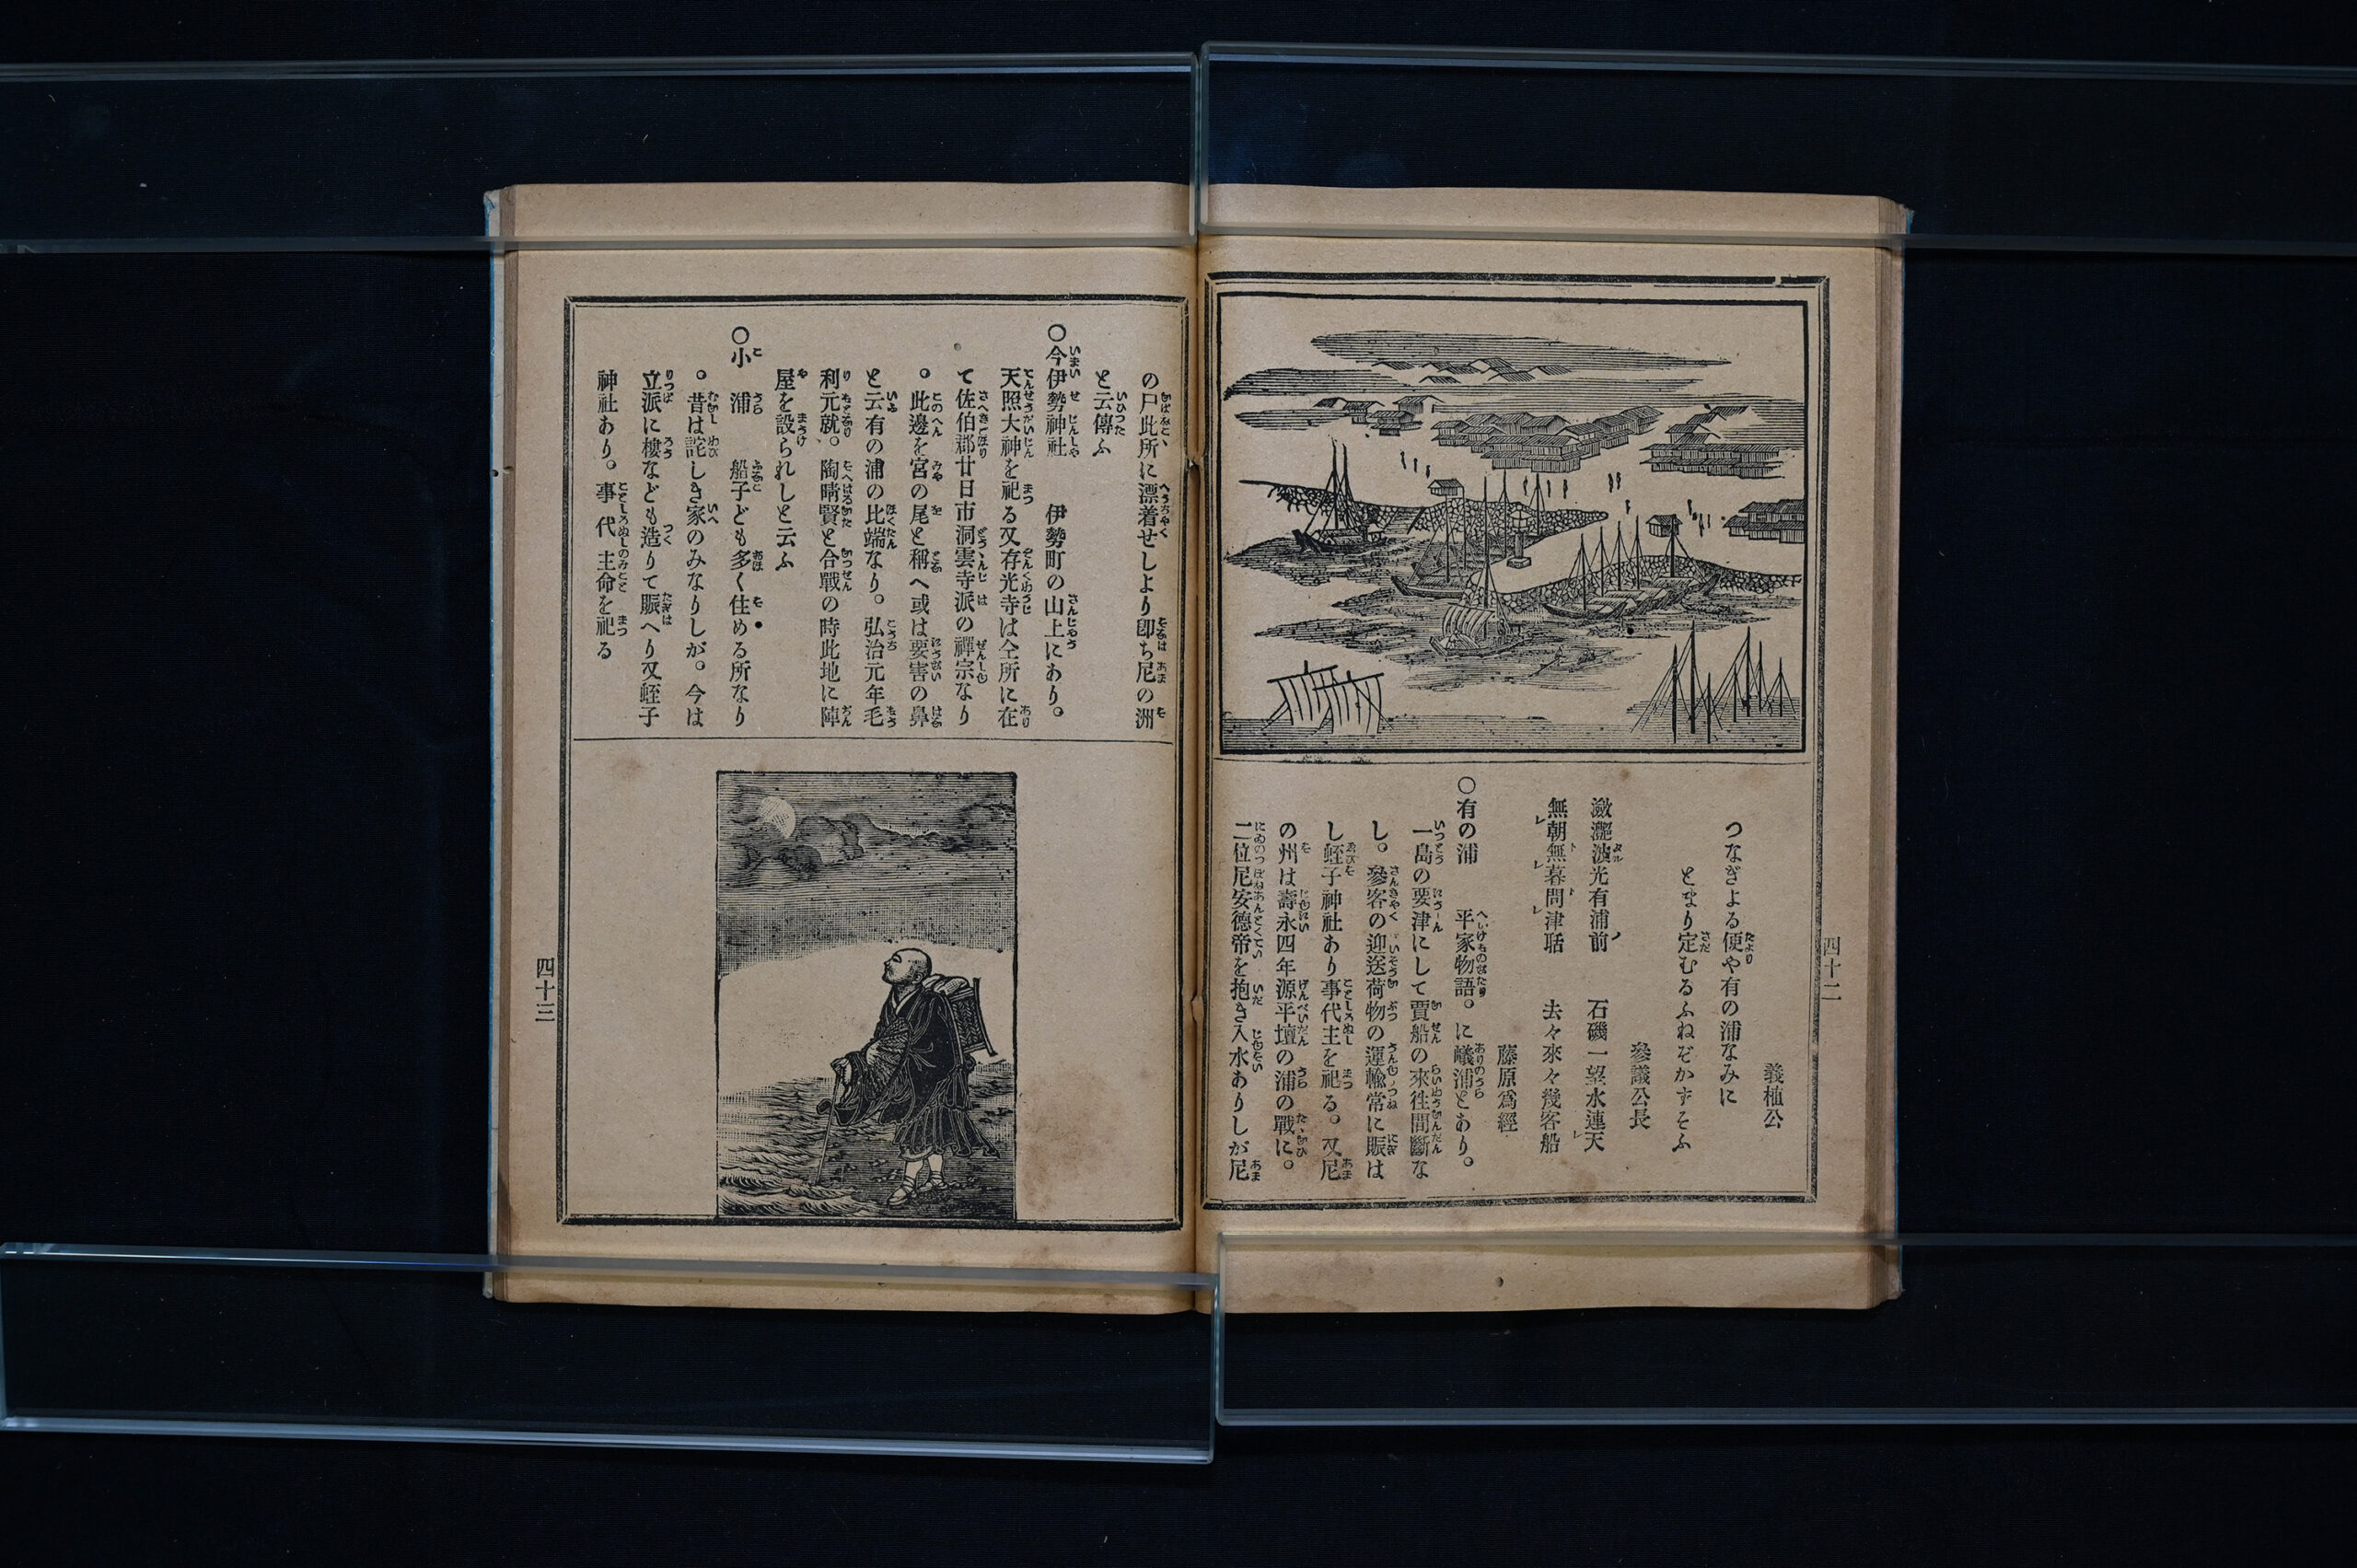 四十二
義植公
つなぎよる便や有の浦なみに
とまり定むるふねぞかずそふ
參議公長
瀲灔波光有浦前 石磯一望水連天
無朝無暮問津聒 去々來々幾客船
藤原爲經
○有の浦 平家物語。に㠖浦とあり。
一島の要津にして賈船の來徃間斷な
し。參客の迎送荷物の運輸常に賑は
し蛭子神社あり事代主を祀る。又尼
の州は壽永四年源平壇の浦の戰に。
二位尼安德帝を抱き入水ありしが尼
の尸此所に漂着せしより卽ち尼の洲
と云傳ふ
○今伊勢神社 伊勢町の山上にあり。
天照大神を祀る又存光寺は仝所に在
て佐伯郡廿日市洞雲寺派の禪宗なり
。此邊を宮の尾と稱へ或は要害の鼻
と云有の浦の比端なり。弘治元年毛
利元就。陶晴賢と合戰の時此地に陣
屋を設られしと云ふ
○小浦 船子ども多く住める所なり
。昔は詫しき家のみなりしが。今は
立派に樓なども造りて賑へり又蛭子
神社あり。事代主命を祀る
四十三